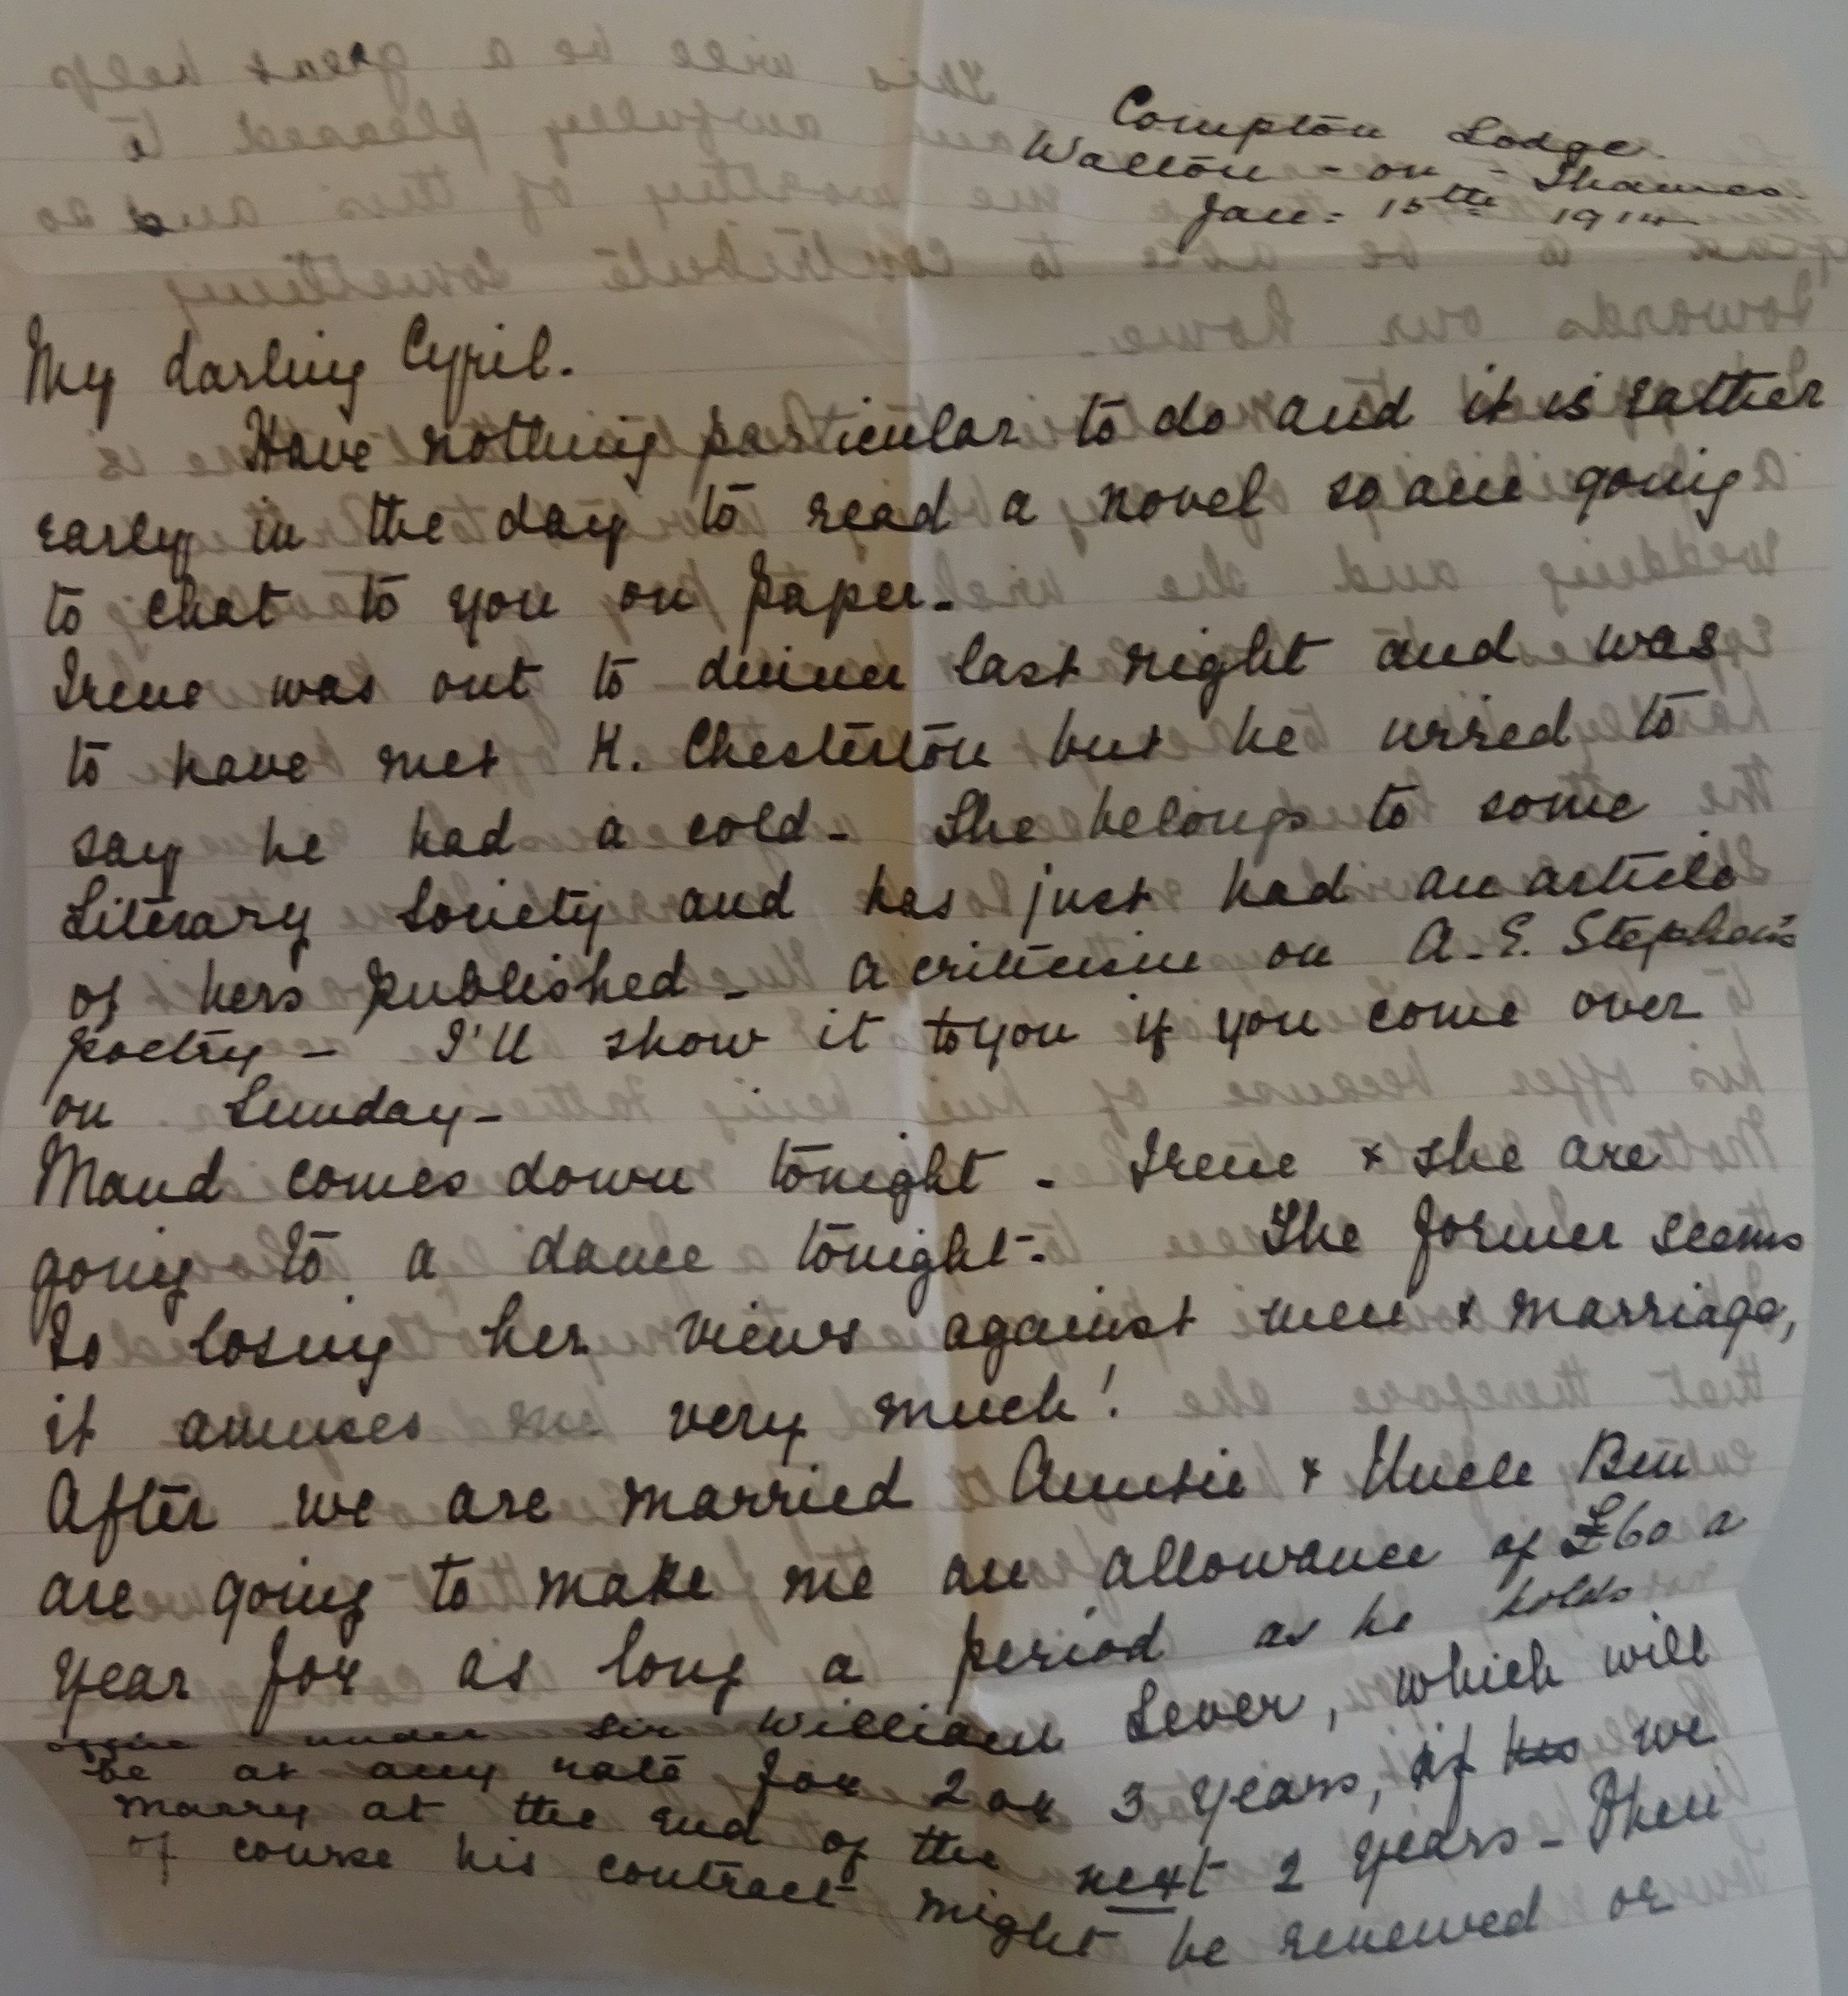 Compton Lodge.
Walton - on - Thames.
Jan: 15th 1914
My darling Cyril.
Have nothing particular to do and it is rather
early in the day to read a novel so am going
to chat to you on paper.
Irene was out to dinner last night and was
to have met K. Chesterton but he wired to
say he had a cold - She belongs to some
Literary Society and has just had an article
of hers published - a criticism on A. E. Stephen's
poetry - I'll show it to you if you come over
on Sunday -
Maud comes down tonight - Irene & she are
going to a dance tonight - The former seems
to losing her views against men & marriage,
it amuses me very much!
After we are married Auntie & Uncle Ben
are going to make me an allowance of £60 a
year for as long a period as he holds
office under Sir William Lever, which will
be at any rate for 2 or 3 years, if we
marry at the end of the next 2 years - Then
of course his contract might be renewed or